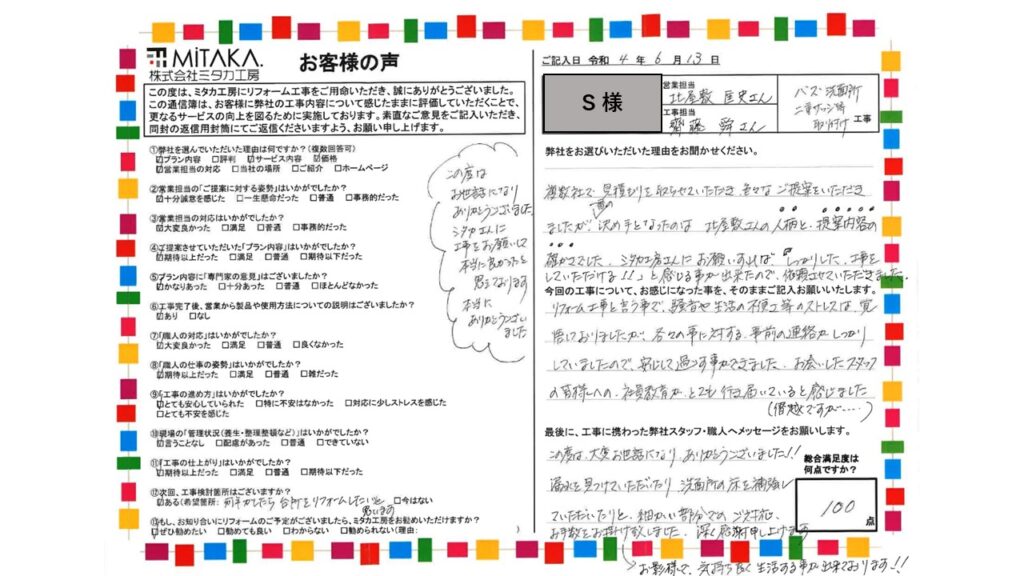 MiTAKA.
株式会社ミタカ工房
お客様の声
この度は、ミタカ工房にリフォーム工事をご用命いただき、誠にありがとうございました。
この通信簿は、お客様に弊社の工事内容について感じたままに評価していただくことで、
更なるサービスの向上を図るために実施しております。素直なご意見をご記入いただき、
同封の返信用封筒にてご返信くださいますよう、お願い申し上げます。
①弊社を選んでいただいた理由は何ですか?(複数回答可)
☑プラン内容 □評判 ☑サービス内容 ☑価格
☑営業担当の対応 □当社の場所 □ご紹介 □ホームページ
②営業担当の「ご提案に対する姿勢」はいかがでしたか?
☑十分誠意を感じた □一生懸命だった □普通 □事務的だった
③営業担当の対応はいかがでしたか?
☑大変良かった □満足 □普通 □事務的だった
④ご提案させていただいた「プラン内容」はいかがでしたか?
☑期待以上だった □満足 □普通 □期待以下だった
⑤プラン内容に「専門家の意見」はございましたか?
☑かなりあった □十分あった □普通 □ほとんどなかった
⑥工事完了後、営業から製品や使用方法についての説明はございましたか?
☑あり □なし
⑦「職人の対応」はいかがでしたか?
☑大変良かった □満足 □普通 □良くなかった
⑧「職人の仕事の姿勢」はいかがでしたか?
☑期待以上だった □満足 □普通 □雑だった
⑨「工事の進め方」はいかがでしたか?
☑とても安心していられた □特に不安はなかった □対応に少しストレスを感じた
□とても不安を感じた
⑩現場の「管理状況(養生・整理整頓など)」はいかがでしたか?
☑言うことなし □配慮があった □普通 □できていない
⑪「工事の仕上がり」はいかがでしたか?
☑期待以上だった □満足 □普通 □期待以下だった
⑫次回、工事検討箇所はございますか?
☑ある(希望箇所: 何年かしたら台所をリフォームしたいと思います □今はない
⑬もし、お知り合いにリフォームのご予定がございましたら、ミタカ工房をお勧めいただけますか?
☑ぜひ勧めたい □勧めても良い □わからない □勧められない(理由: )
この度は
お世話になり
ありがとうございました。
ミタカさんに
工事をお願いして
本当に良かったと
思っております
本当に
ありがとうござい
ました
ご記入日 令和 4 年 6 月 13 日
S 様
営業担当
北屋敷 匡史さん
工事担当
齊藤 舜さん
バス・洗面所
二重サッシ等
取り付け 工事
弊社をお選びいただいた理由をお聞かせください。
複数社で見積もりを取らせていただき、色々なご提案をいただき
ましたが、決め手となったのは 北屋敷さんの人柄と、提案内容の
確かさでした。ミタカ工房さんにお願いすれば、「しっかりした、工事を
していただける!!」と感じる事が出来たので、依頼させていただきました。
今回の工事について、お感じになった事を、そのままご記入お願いいたします。
リフォーム工事と言う事で、騒音や生活の不便工等のストレスは、覚
悟しておりましたが、各々の事に対する、事前の連絡がしっかり
していましたので、安心して過ごす事ができました。お会いしたスタッフ
の皆様への、社員教育が、とても行き届いていると感じました
(僭越ですが……)
最後に、工事に携わった弊社スタッフ・職人へメッセージをお願いします。
この度は、大変お世話になり、ありがとうございました!!
漏水を見つけていただいたり 洗面所の床を補強し
ていただいたりと、細かい部分でのご対応、
お手数をお掛け致しました。深く感謝申し上げます
お影様で、気持ち良く生活する事が出来ております!!
総合満足度は
何点ですか?
100 点